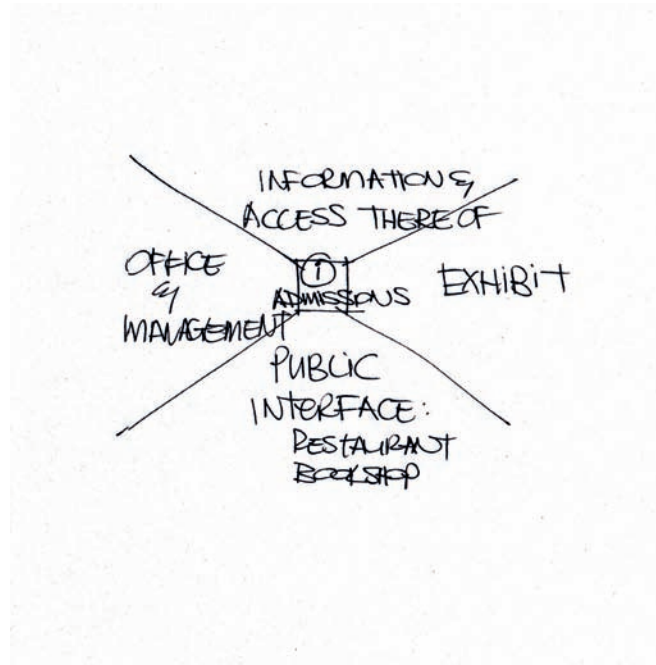 INFORMATION &
ACCESS THERE OF
OFFICE
&
MANAGEMENT
i
ADMISSIONS
EXHIBIT
PUBLIC
INTERFACE:
RESTAURANT
BOOKSHOP